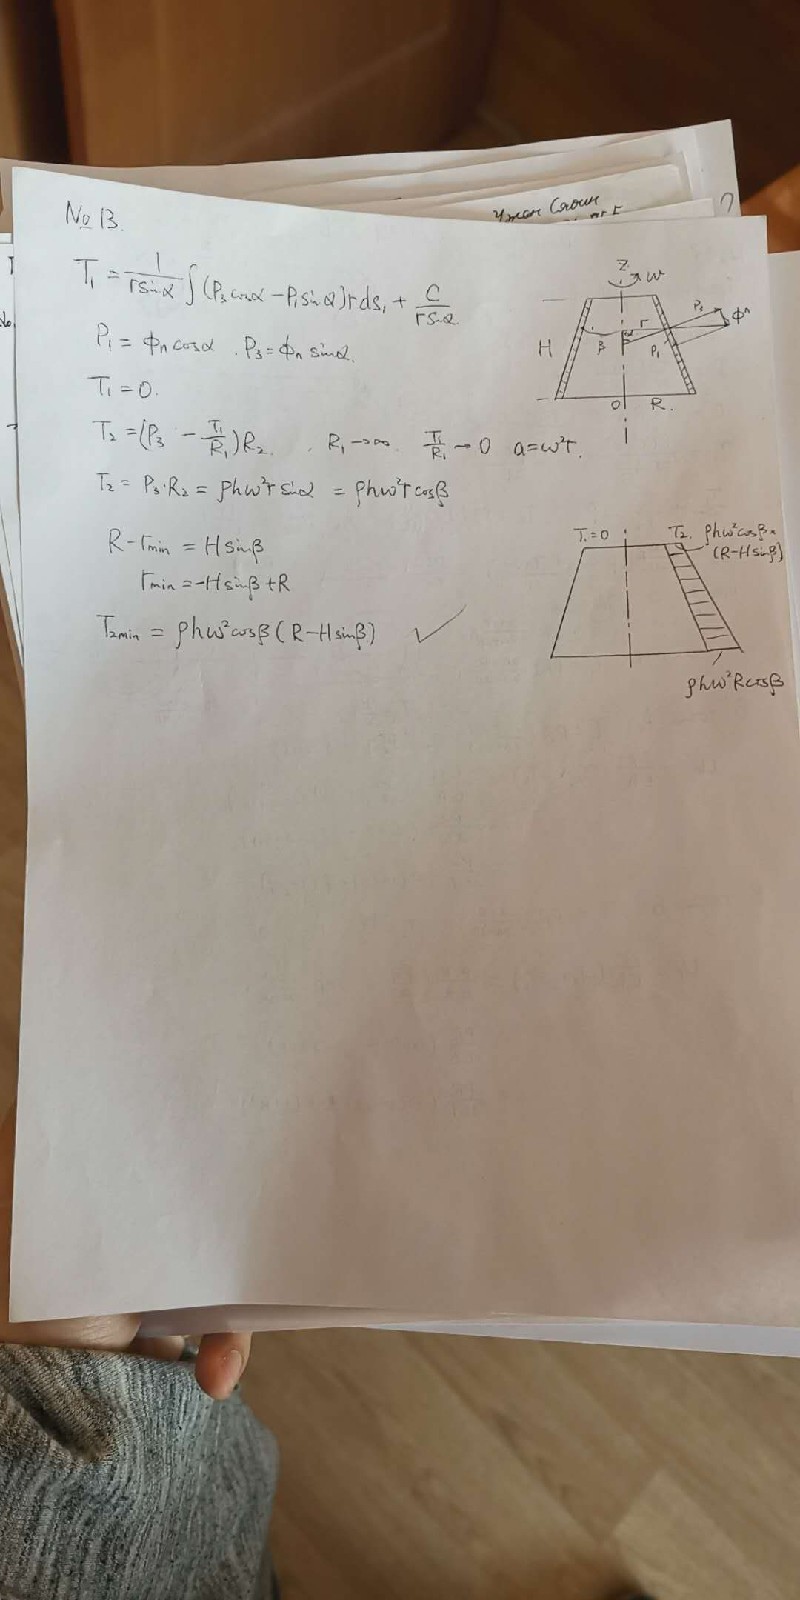 № 13.
T₁ = 1/(r sinα) ∫ (P₃ cosα − P₁ sinα) r ds₁ + C/(r sinα)
P₁ = ϕn cosα . P₃ = ϕn sinα.
T₁ = 0.
T₂ = (P₃ − T₁/R₁) R₂ . R₁ → ∞. T₁/R₁ → 0 a = ω²r.
T₂ = P₃·R₂ = ρhω²r sinα = ρhω²r cosβ
R − rmin = H sinβ
rmin = −H sinβ + R
T₂min = ρhω² cosβ (R − H sinβ) ✓
Z ω
H β r P₁ ϕn
O R.
T₁=0 T₂. ρhω²cosβ×
(R−Hsinβ)
ρhω²Rcosβ